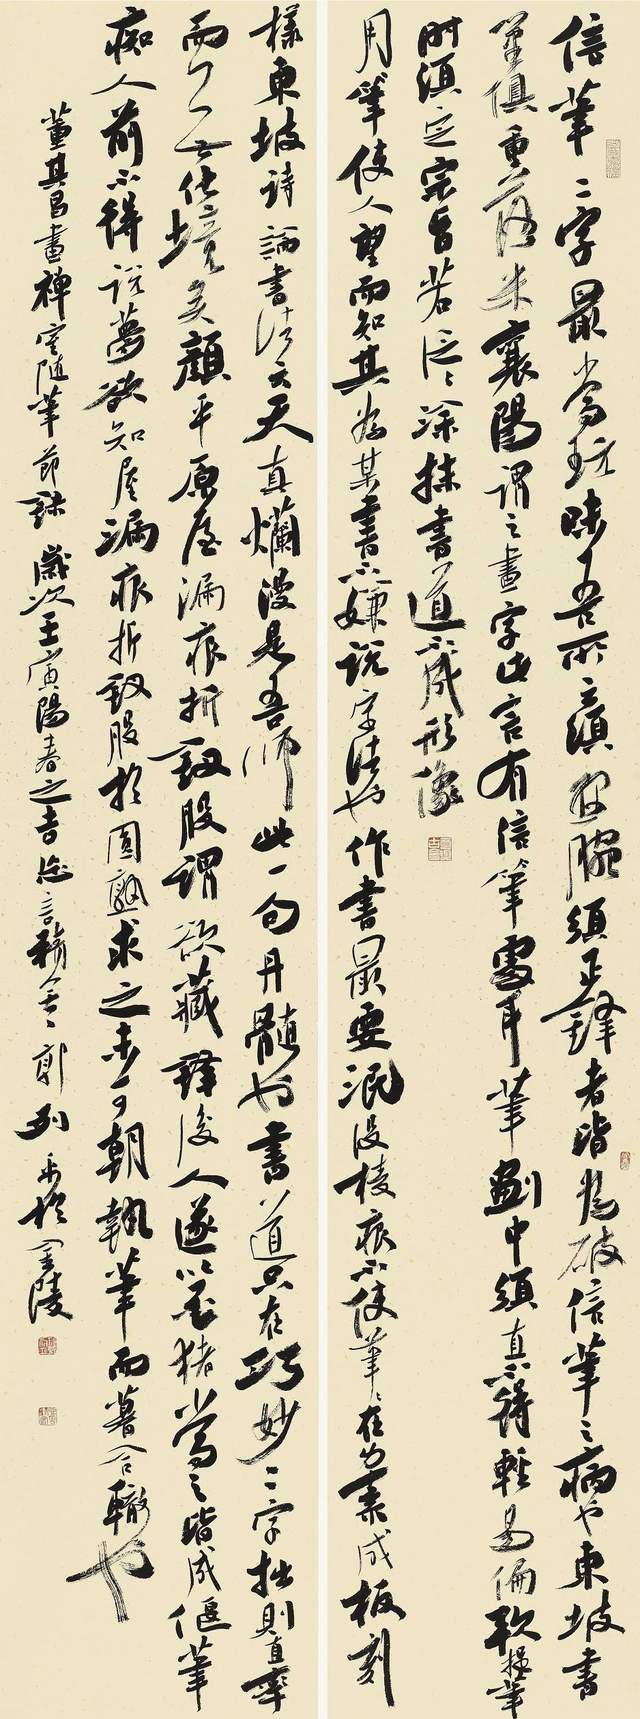 信筆二字最當玩味吾所云須懸腕須正鋒者皆為破信筆之病也東坡書
筆俱重落米襄陽謂之畫字此言有信筆處耳筆劃中須直不得輕易偏軟捉筆
時須定宗旨若泛泛塗抹書道不成形像
用筆使人望而知其為某書不嫌說字法也作書最要泯沒棱痕不使筆筆在紙素成板刻
樣東坡詩論書法云天真爛漫是吾師此一句丹髓也書道只在巧妙二字拙則直率
而了无化境矣顏平原屋漏痕折釵股謂欲藏鋒後人遂以墨豬當之皆成偃筆
痴人前不得說夢欲知屋漏痕折釵股於圓熟求之未可朝執筆而暮合轍也
董其昌畫禪室隨筆節録歲次壬寅陽春之吉郭列平於金陵